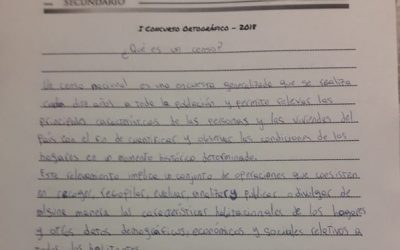 SECUNDARIO
I CONCURSO ORTOGRÁFICO - 2018
¿Qué es un censo?
Un censo nacional es una encuesta generalizada que se realiza
cada diez años a toda la población y permite relevar las
principales características de las personas y las viviendas del
País con el fin de cuantificar y observar las condiciones de los
hogares en un momento histórico determinado.
Este relevamiento implica un conjunto de operaciones que consisten
en recoger, recopilar, evaluar, analizar y publicar o divulgar de
alguna manera las características habitacionales de los hogares
y otros datos demográficos, económicos y sociales relativos a
todos los habitantes